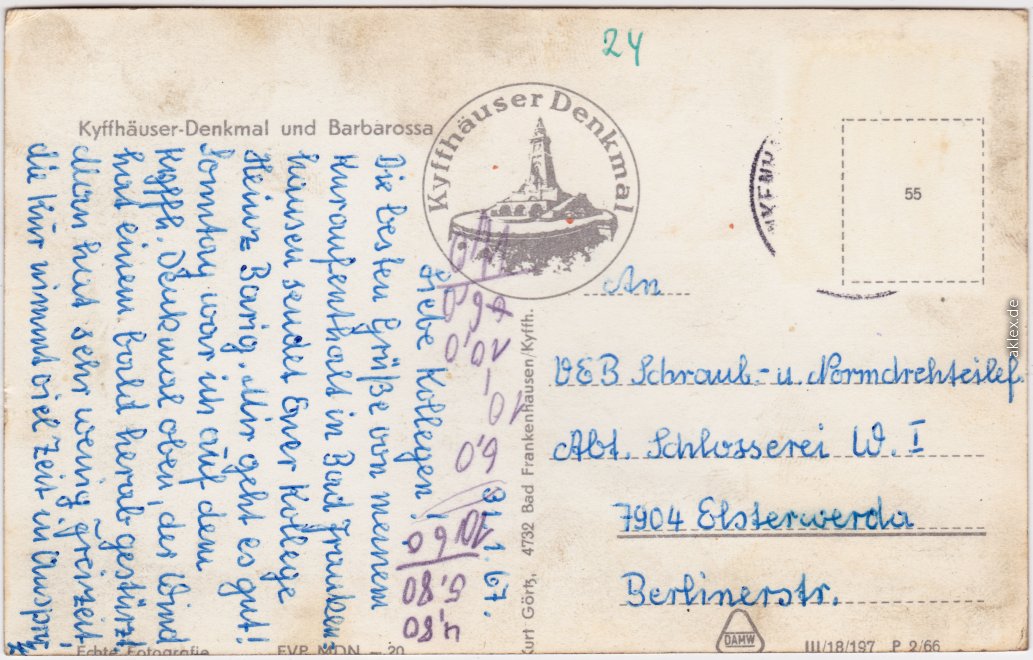 24
Kyffhäuser-Denkmal und Barbarossa
Kyffhäuser Denkmal
55
31.1.67.
Liebe Kollegen!
Die besten Grüße von meinem
Kuraufenthalt in Bad Franken=
hausen sendet Euer Kollege
Heinz Barig. Mir geht es gut!
Sonntag war ich auf dem
Kyffh. Denkmal oben, der Wind
hat einem bald herabgestürzt.
Man hat sehr wenig Freizeit,
die Kur nimmt viel Zeit in Anspr.
An
VEB Schraub.- u. Normdrehteilef.
Abt. Schlosserei W. I
7904 Elsterwerda
Berlinerstr.
4,80
5,80
10,60
6,0
10,-
10,0
Kurt Görtz, 4732 Bad Frankenhausen/Kyffh.
Echte Fotografie
EVP MDN –.20
DAMW
III/18/197 P 2/66
aklex.de